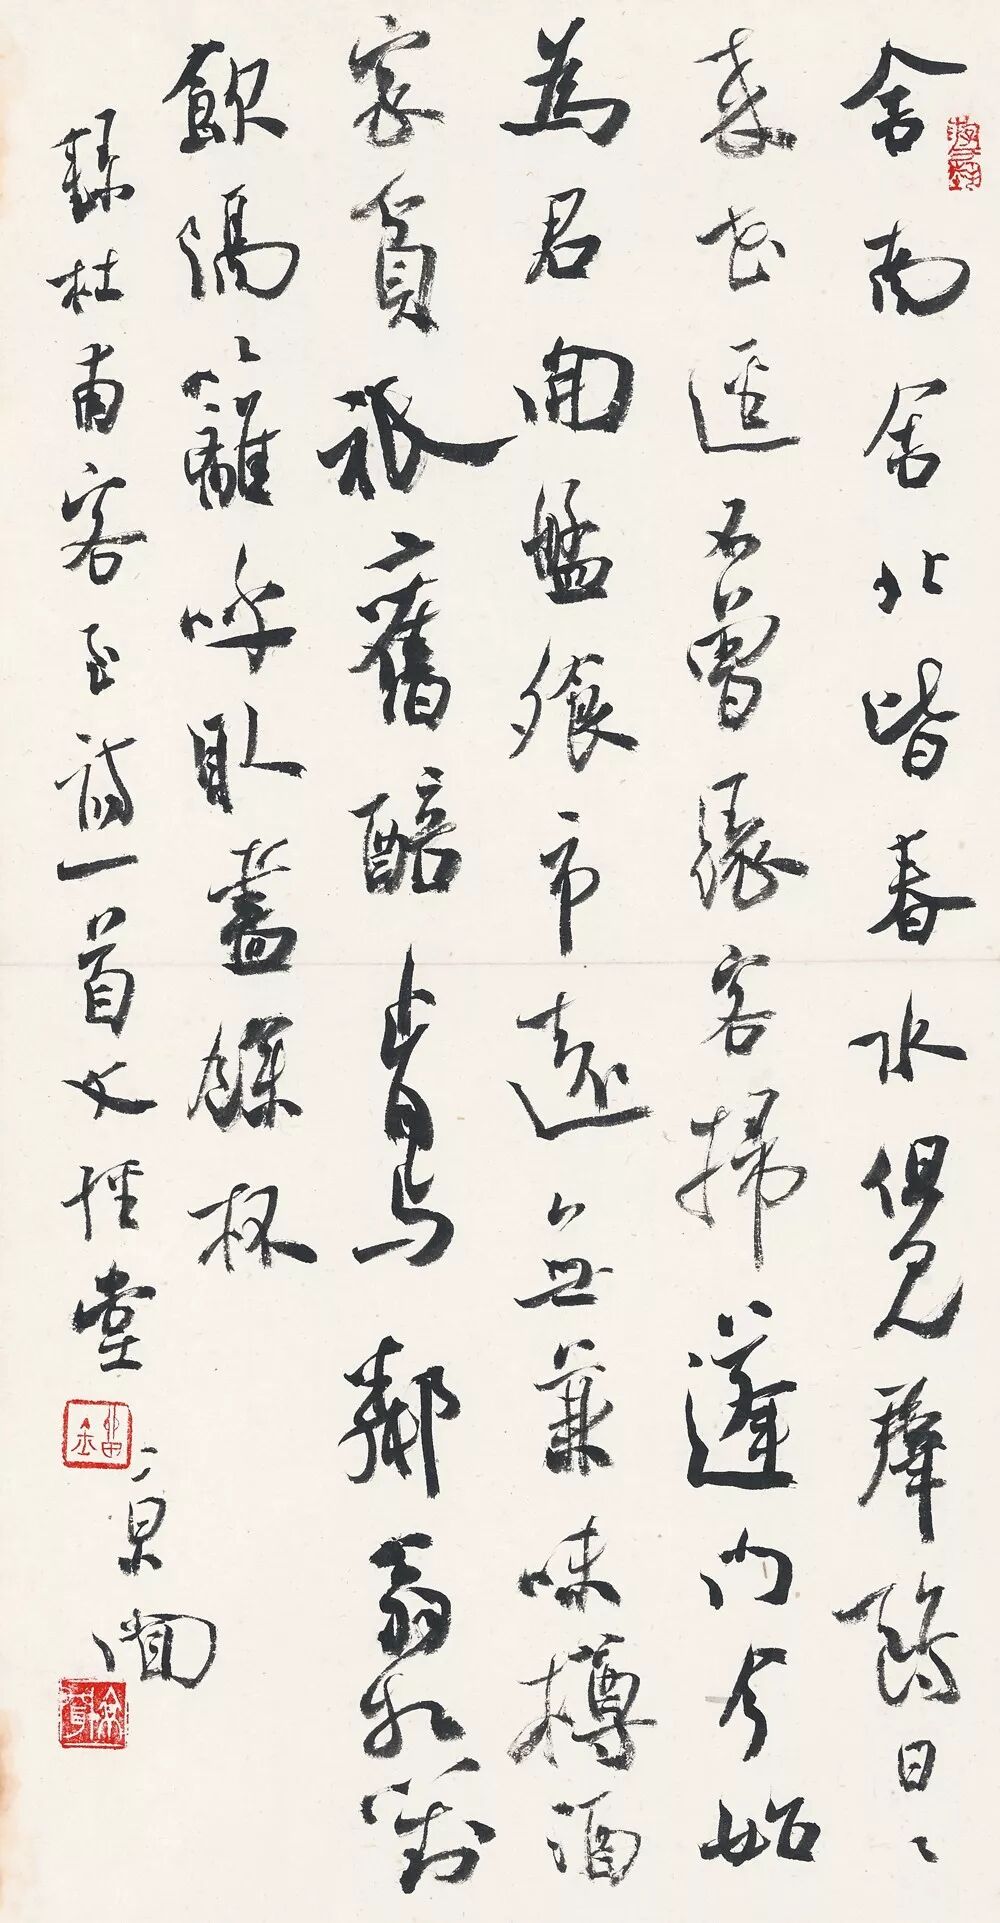 舍南舍北皆春水但見群鷗日〻
來花逕不曾緣客掃蓬門今始
為君開盤飧市遠無兼味樽酒
家貧祇舊醅肯與鄰翁相對
飲隔籬呼取盡餘杯
錄杜甫客至詩一首